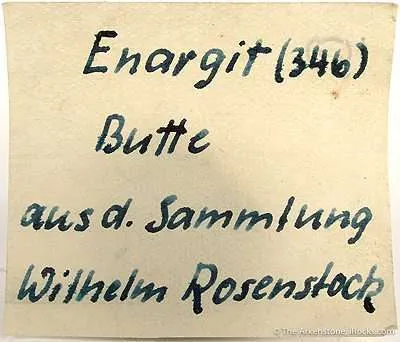 Enargit (346)
Butte
aus d. Sammlung
Wilhelm Rosenstock
© The Arkenstone, iRocks.com